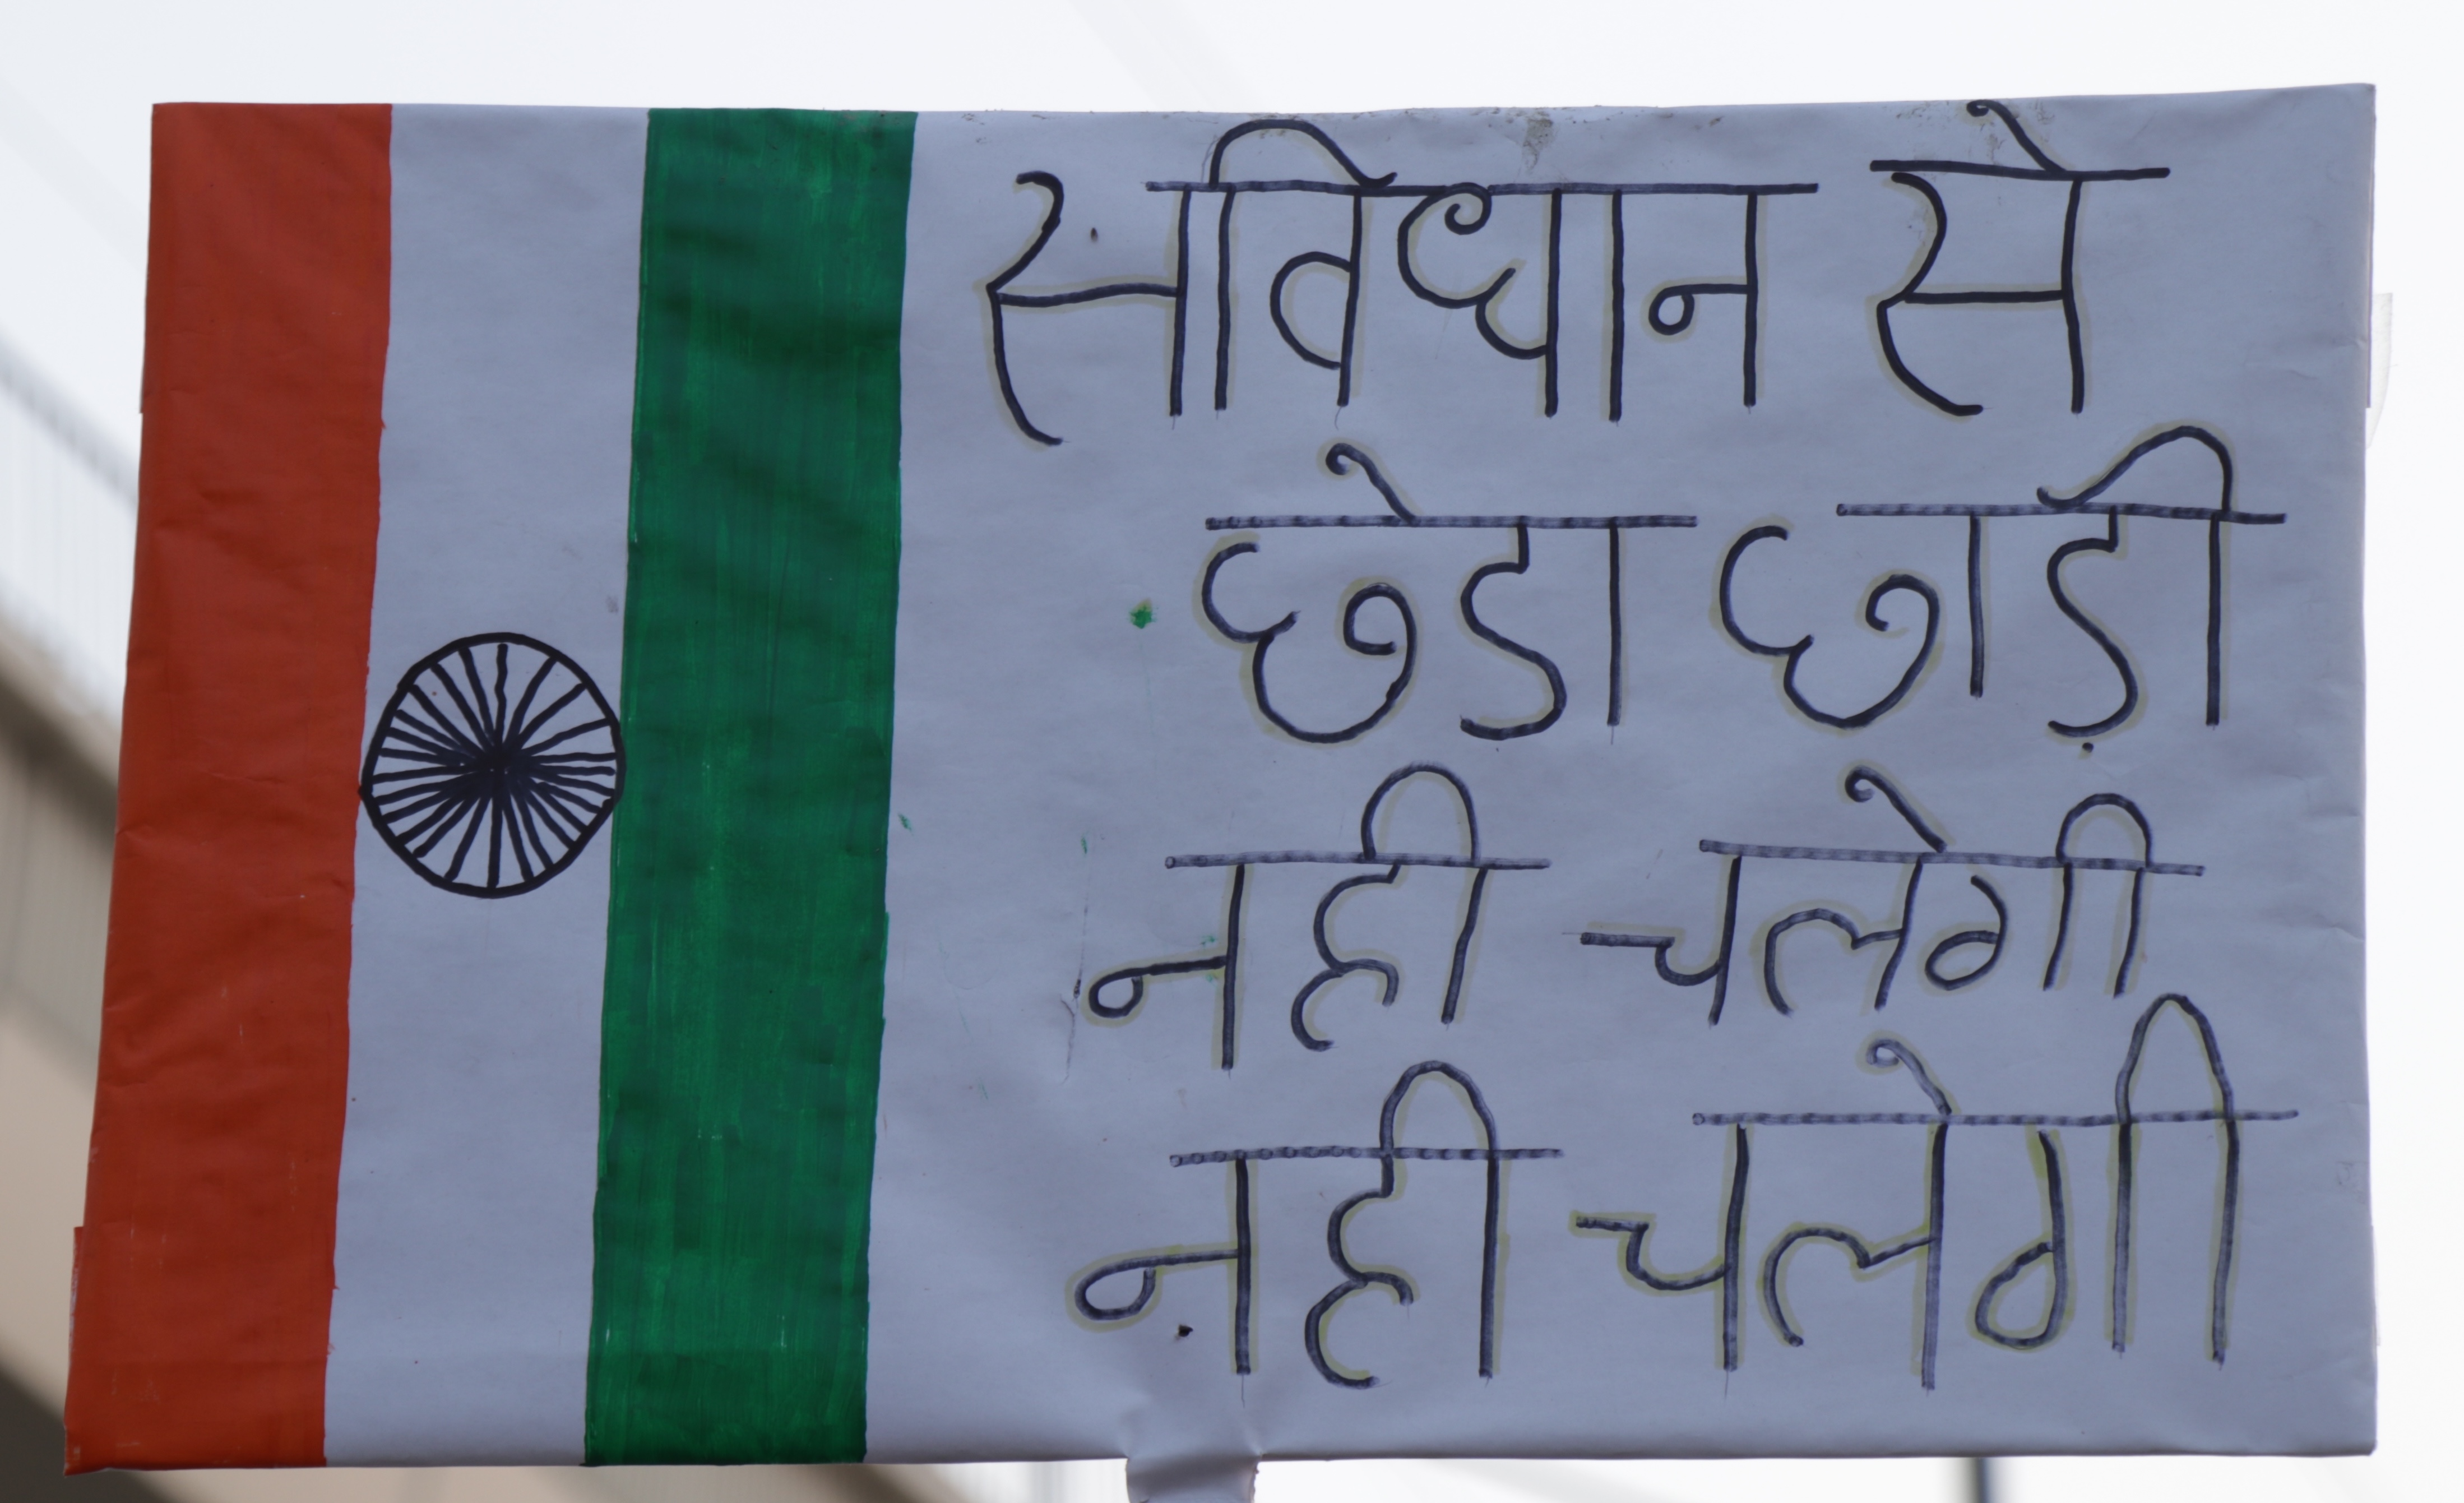 सविधान से
छेडा छाड़ी
नही चलेगी
नही चलेगी